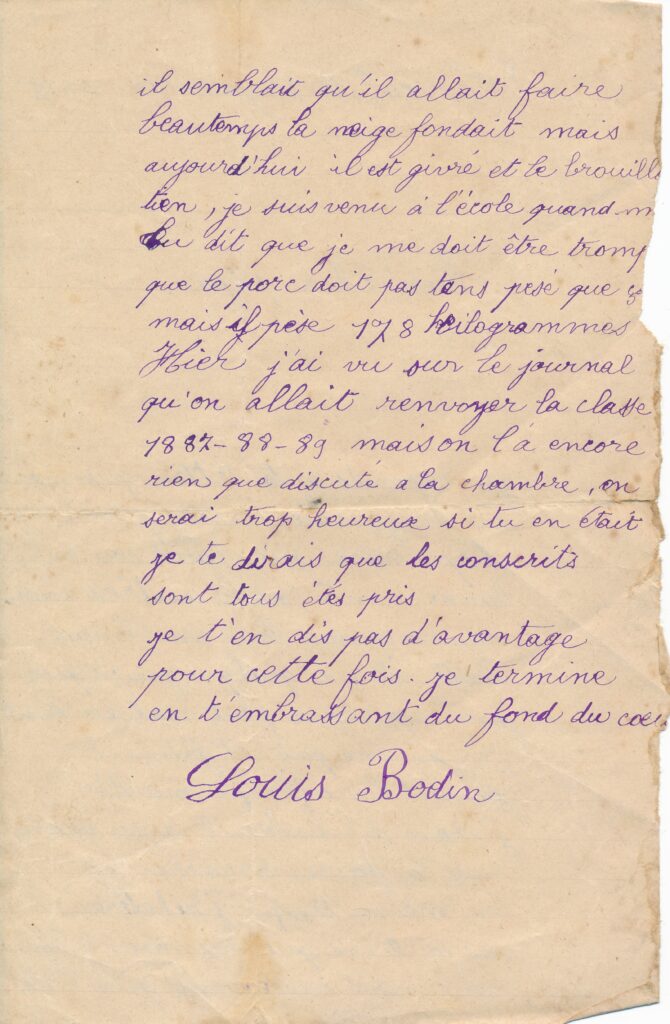 il semblait qu'il allait faire
beautemps la neige fondait mais
aujourd'hui il est givré et le brouilla
tien, je suis venu à l'école quand-m
tu dit que je me doit être tromp
que le porc doit pas tens pesé que
mais il pèse 178 kilogrammes
Hier j'ai vu sur le journal
qu'on allait renvoyer la classe
1887-88-89 mais on l'a encore
rien que discuté a la chambre, on
serai trop heureux si tu en était
je te dirais que les conscrits
sont tous étés pris
je t'en dis pas d'avantage
pour cette fois. je termine
en t'embrassant du fond du coeu
Louis Bodin